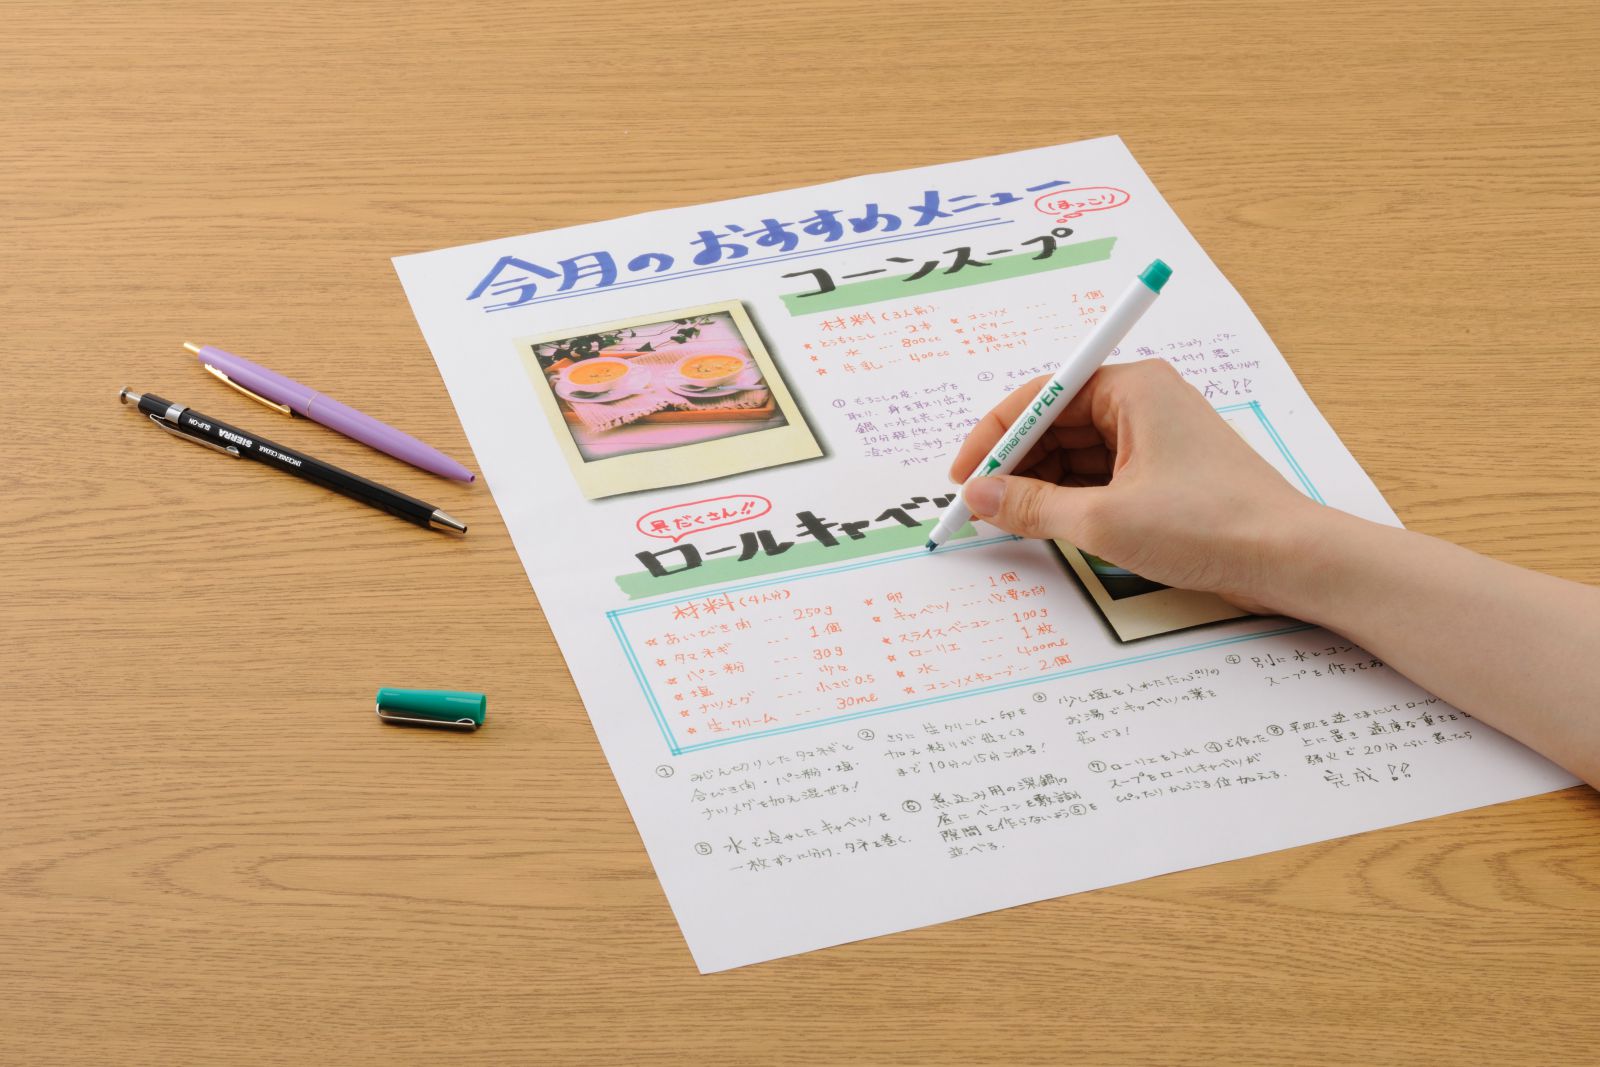 今月のおすすめメニュー
ほっこり
コーンスープ
材料(3人前)
★とうもろこし … 2本
★ 水 … 800cc
★ 牛乳 … 400cc
★ コンソメ … 1個
★ バター … 10g
★ 塩コショー … 少
★ パセリ
① もろこしの皮・ひげを
取り、身を取り出す。
鍋に水を共に入れ
10分程炊く。そのまま
冷やし、ミキサーで
②それをザル
③ 塩・コショウ、バター
を付け 器に
パセリを振りかけ
成!!
具だくさん!!
ロールキャベツ
材料(4人分)
☆あいびき肉 … 250g
☆タマネギ … 1個
☆パン粉 … 30g
☆塩 … 少々
☆ナツメグ … 小さじ0.5
☆生クリーム … 30ml
☆ 卵 … 1個
☆ キャベツ … 必要なだけ
☆ スライスベーコン … 100g
☆ ローリエ … 1枚
☆ 水 … 400ml
☆ コンソメキューブ … 2個
① みじん切りしたタマネギと
合びき肉・パン粉・塩・
ナツメグを加え混ぜる!
② さらに生クリーム・卵を
加え粘りが出てくる
まで10分〜15分こねる!
③ 少し塩を入れたたっぷりの
お湯でキャベツの葉を
茹でる!
④ 別に水とコン
スープを作ってお
⑤ 水で冷やしたキャベツを
一枚ずつに分け、タネを巻く。
⑥ 煮込み用の深鍋の
底にベーコンを敷き
隙間を作らないよう⑤を
並べる。
⑦ ローリエを入れ ④で作った
スープをロールキャベツが
ぴったりかぶる位加える。
⑧ 平皿を逆さまにしてロール
上に置き 適度な重さを
弱火で20分くらい煮たら
完成!!
smareco PEN
SLIP-ON
SIERRA
INCENSE CEDAR